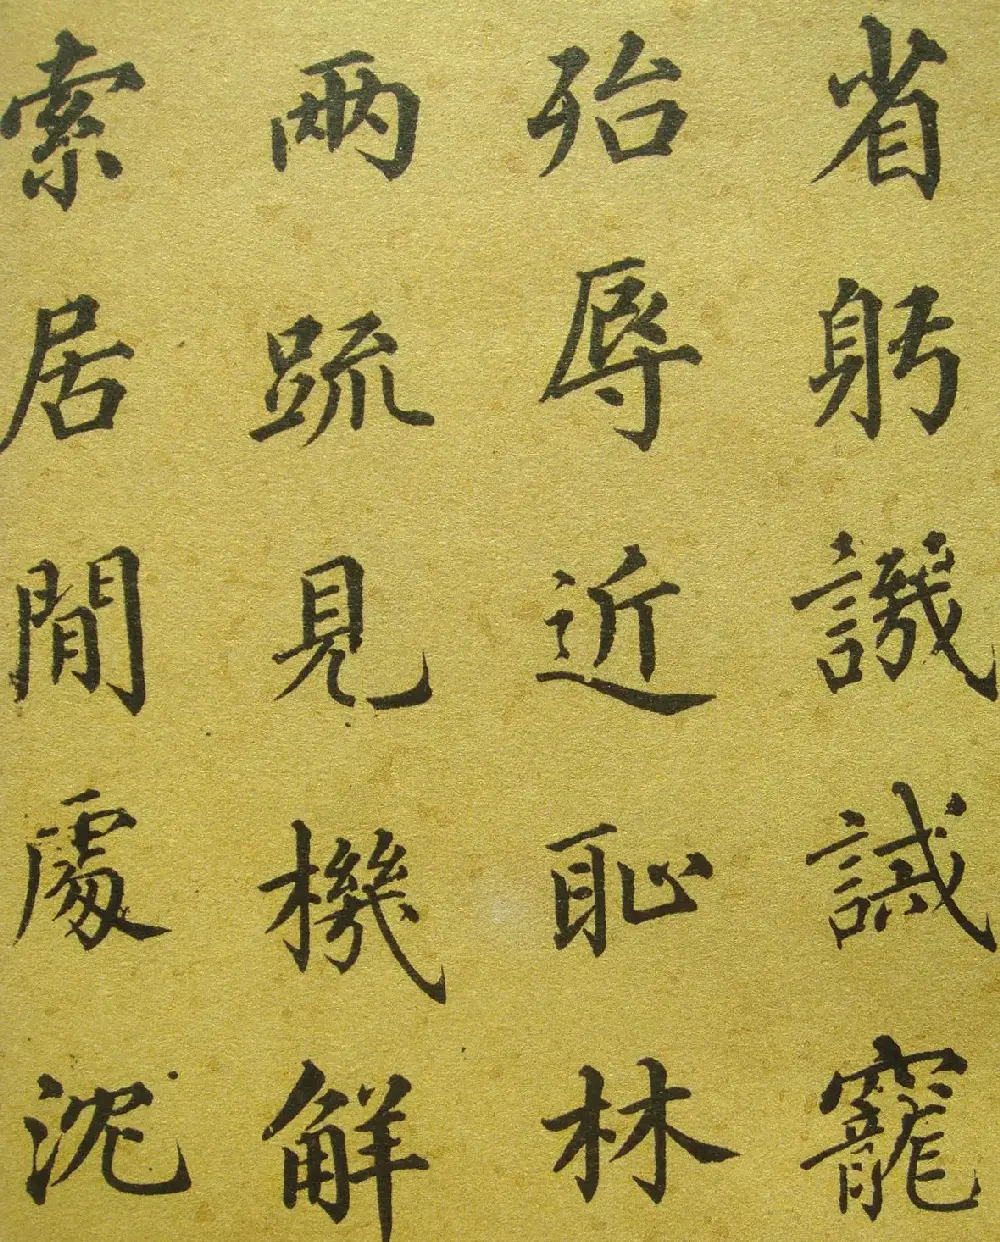 省躬譏誡寵
殆辱近恥林
兩疏見機解
索居閒處沈